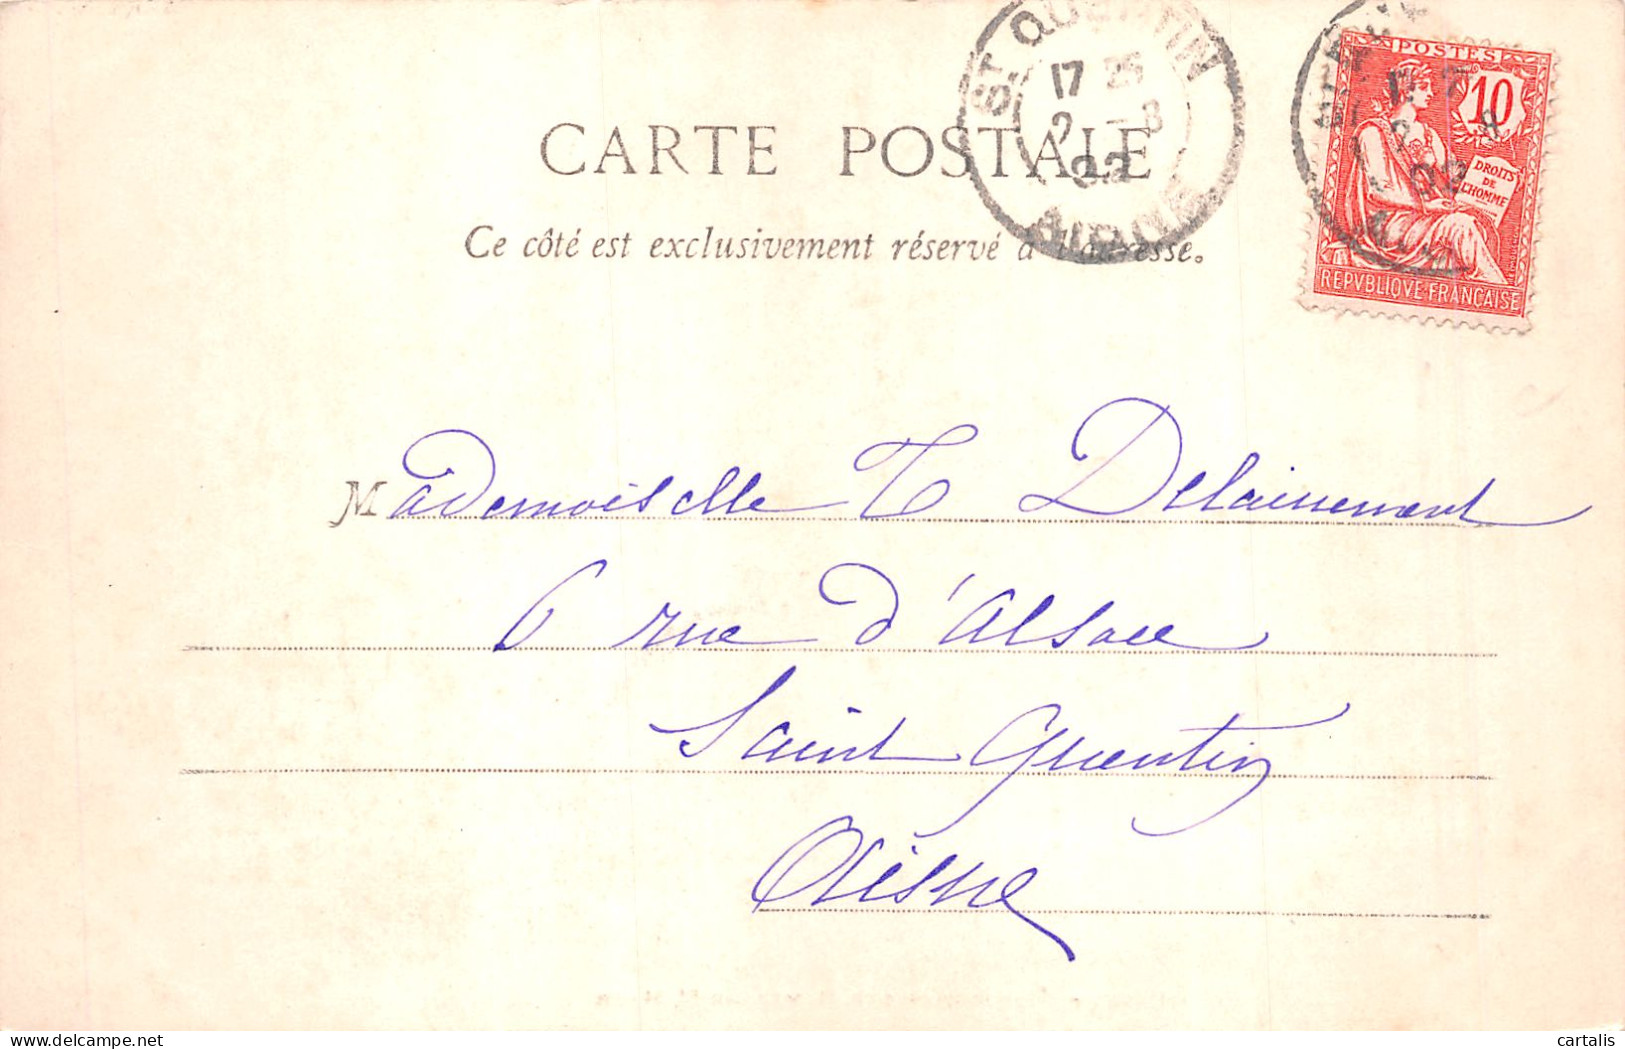 ST QUENTIN
17 25
2 - 8
02
AISNE
POSTES
10
DROITS
DE
L'HOMME
REPVBLIQVE FRANÇAISE
CARTE POSTALE
Ce côté est exclusivement réservé à l'adresse.
Mademoiselle T Delainement
6 rue d'Alsace
Saint Quentin
Aisne
cartalis